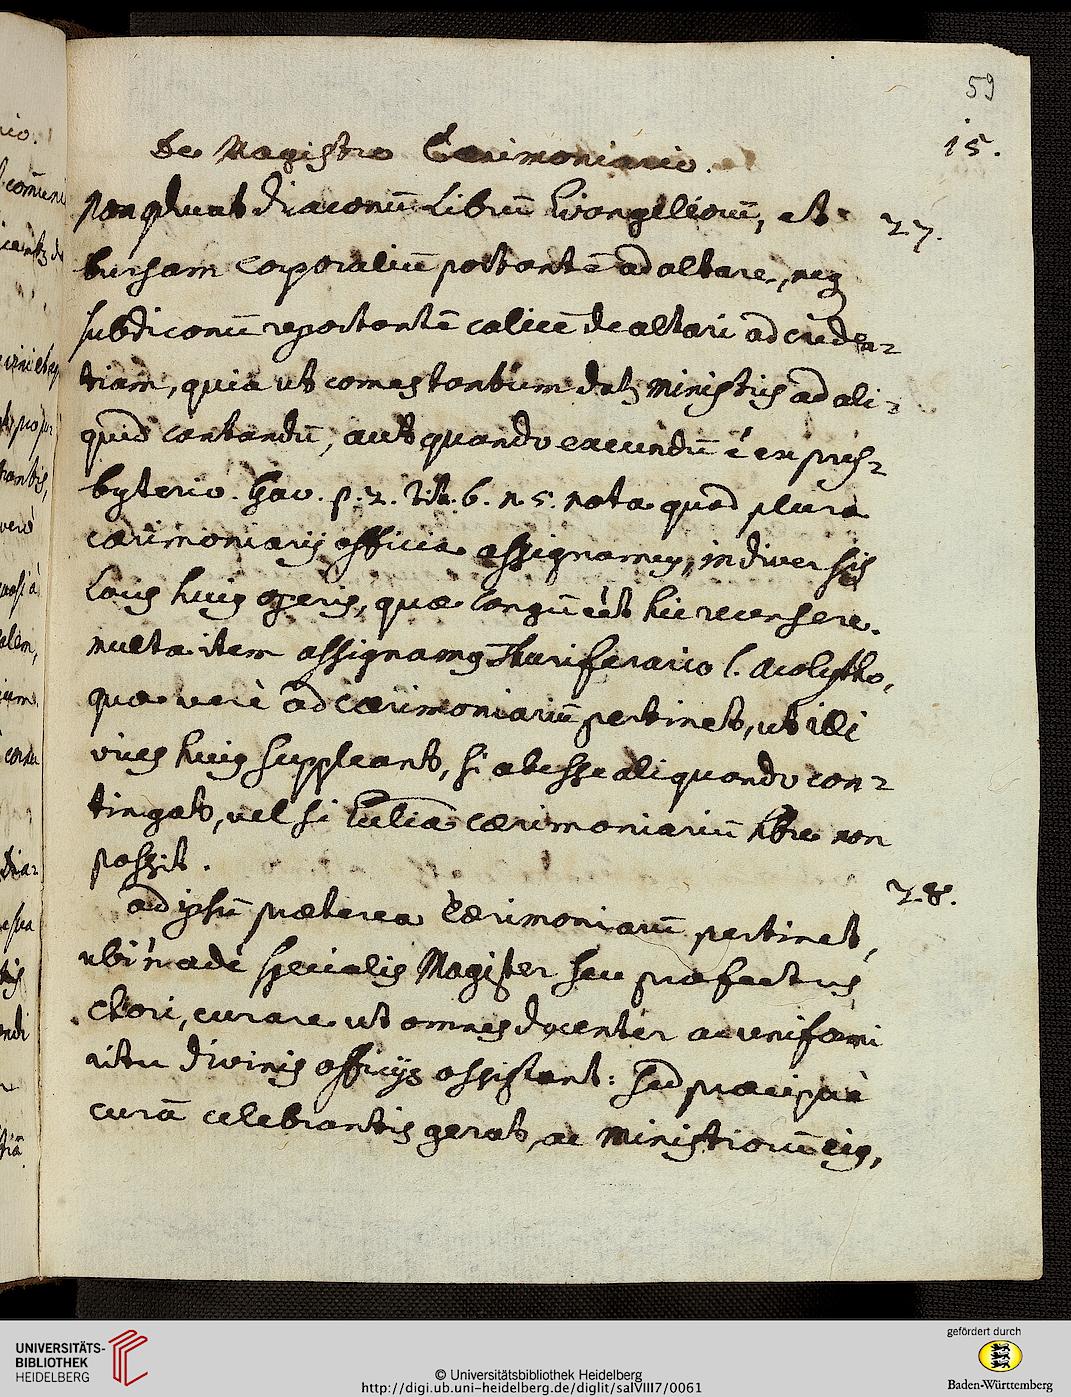 59
15.
De Magistro Cærimoniario.
non præeat diaconū librū Evangeliorū, et 27.
bursam corporaliū portantē ad altare, neq
subdiconū reportantē calicē de altari ad creden-
tiam, quia ut comes tantum datʒ ministris ad ali-
quid cantandū, aut quando eacundū ē ex pres-
byterio. Gav. p. 2. Tit. 6. n. 5. nota quod plura
cærimoniarijs officia assignamus, in diversis
locis huiq operis, quæ longū eēt hic recensere.
multa item assignamq Thuriferario l. Acolytho,
quæ verè ad cærimoniariū pertinet, ut illi
vices huiq suppleant, si abesse aliquando con-
tingat, vel si Ecclīa cærimoniariū hre non
possit.
ad ipsū præterea Cærimoniarū pertinet, 28.
ubi n adē specialis Magister seu præfectus
Chori, curare ut omnes decenter ac uniformi
ritu divinis officijs assistant: sed præcipuè
curā celebrantis gerat, ac ministrorū eiq,
UNIVERSITÄTS-
BIBLIOTHEK
HEIDELBERG
© Universitätsbibliothek Heidelberg
http://digi.ub.uni-heidelberg.de/diglit/salVIII7/0061
gefördert durch
Baden-Württemberg